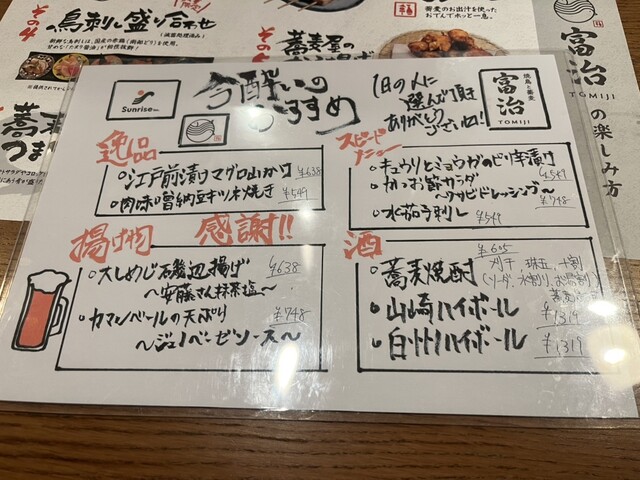 その4
鳥刺し盛り合わせ
(減菌処理済み)
その
蕎麦屋の
蕎麦のお出汁を使った
おでんでホッと一息。
富治
TOMIJI
の楽しみ方
蕎麦
つま
Sunrise
今酔いの
おすすめ
1日の人に
選んで頂き
ありがとうございね!
焼鳥と蕎麦
富治
TOMIJI
逸品
・江戸前漬けマグロ山かけ ¥638
・肉味噌納豆キツネ焼き ¥549
スピードメニュー
・キュウリとミョウガのピリ辛漬け ¥549
・かつお節サラダ
〜ワサビドレッシング〜 ¥748
・水茄子刺し ¥549
揚げ物
感謝!!
・大しめじ磯辺揚げ ¥638
〜安藤さん抹茶塩〜
・カマンベールの天ぷり ¥748
〜ジェノベーゼソース〜
酒
¥605
・蕎麦焼酎
(ソーダ、水割り、お湯割り)
・山崎ハイボール ¥1319
・白州ハイボール ¥1319